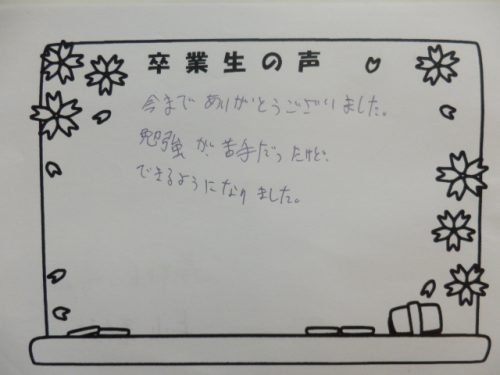 卒業生の声
今までありがとうございました。
勉強が、苦手だったけど、
できるようになりました。